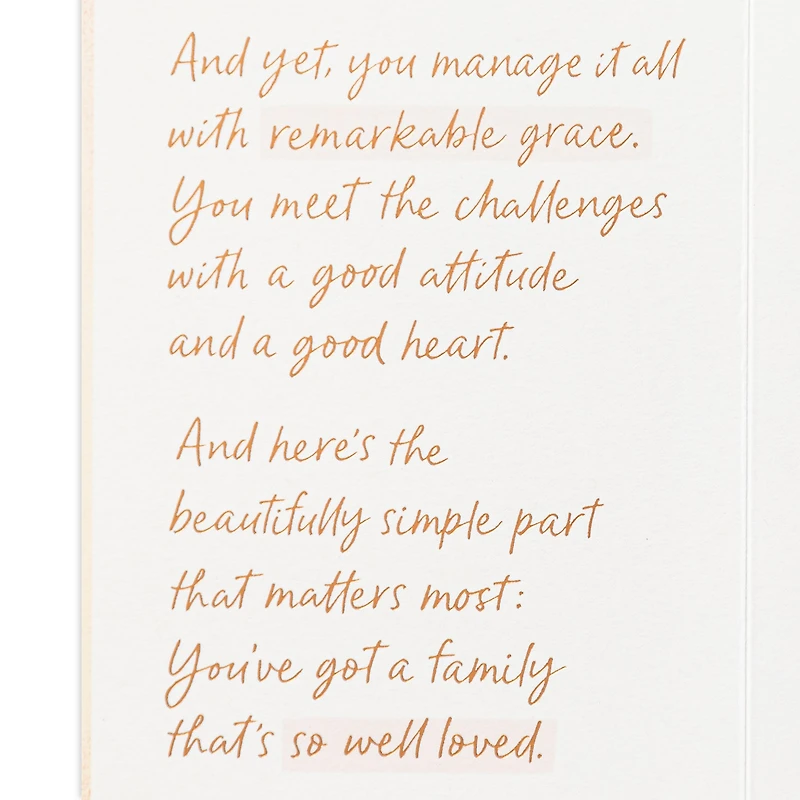 And yet, you manage it all
with remarkable grace.
You meet the challenges
with a good attitude
and a good heart.
And here's the
beautifully simple part
that matters most:
You've got a family
that's so well loved.